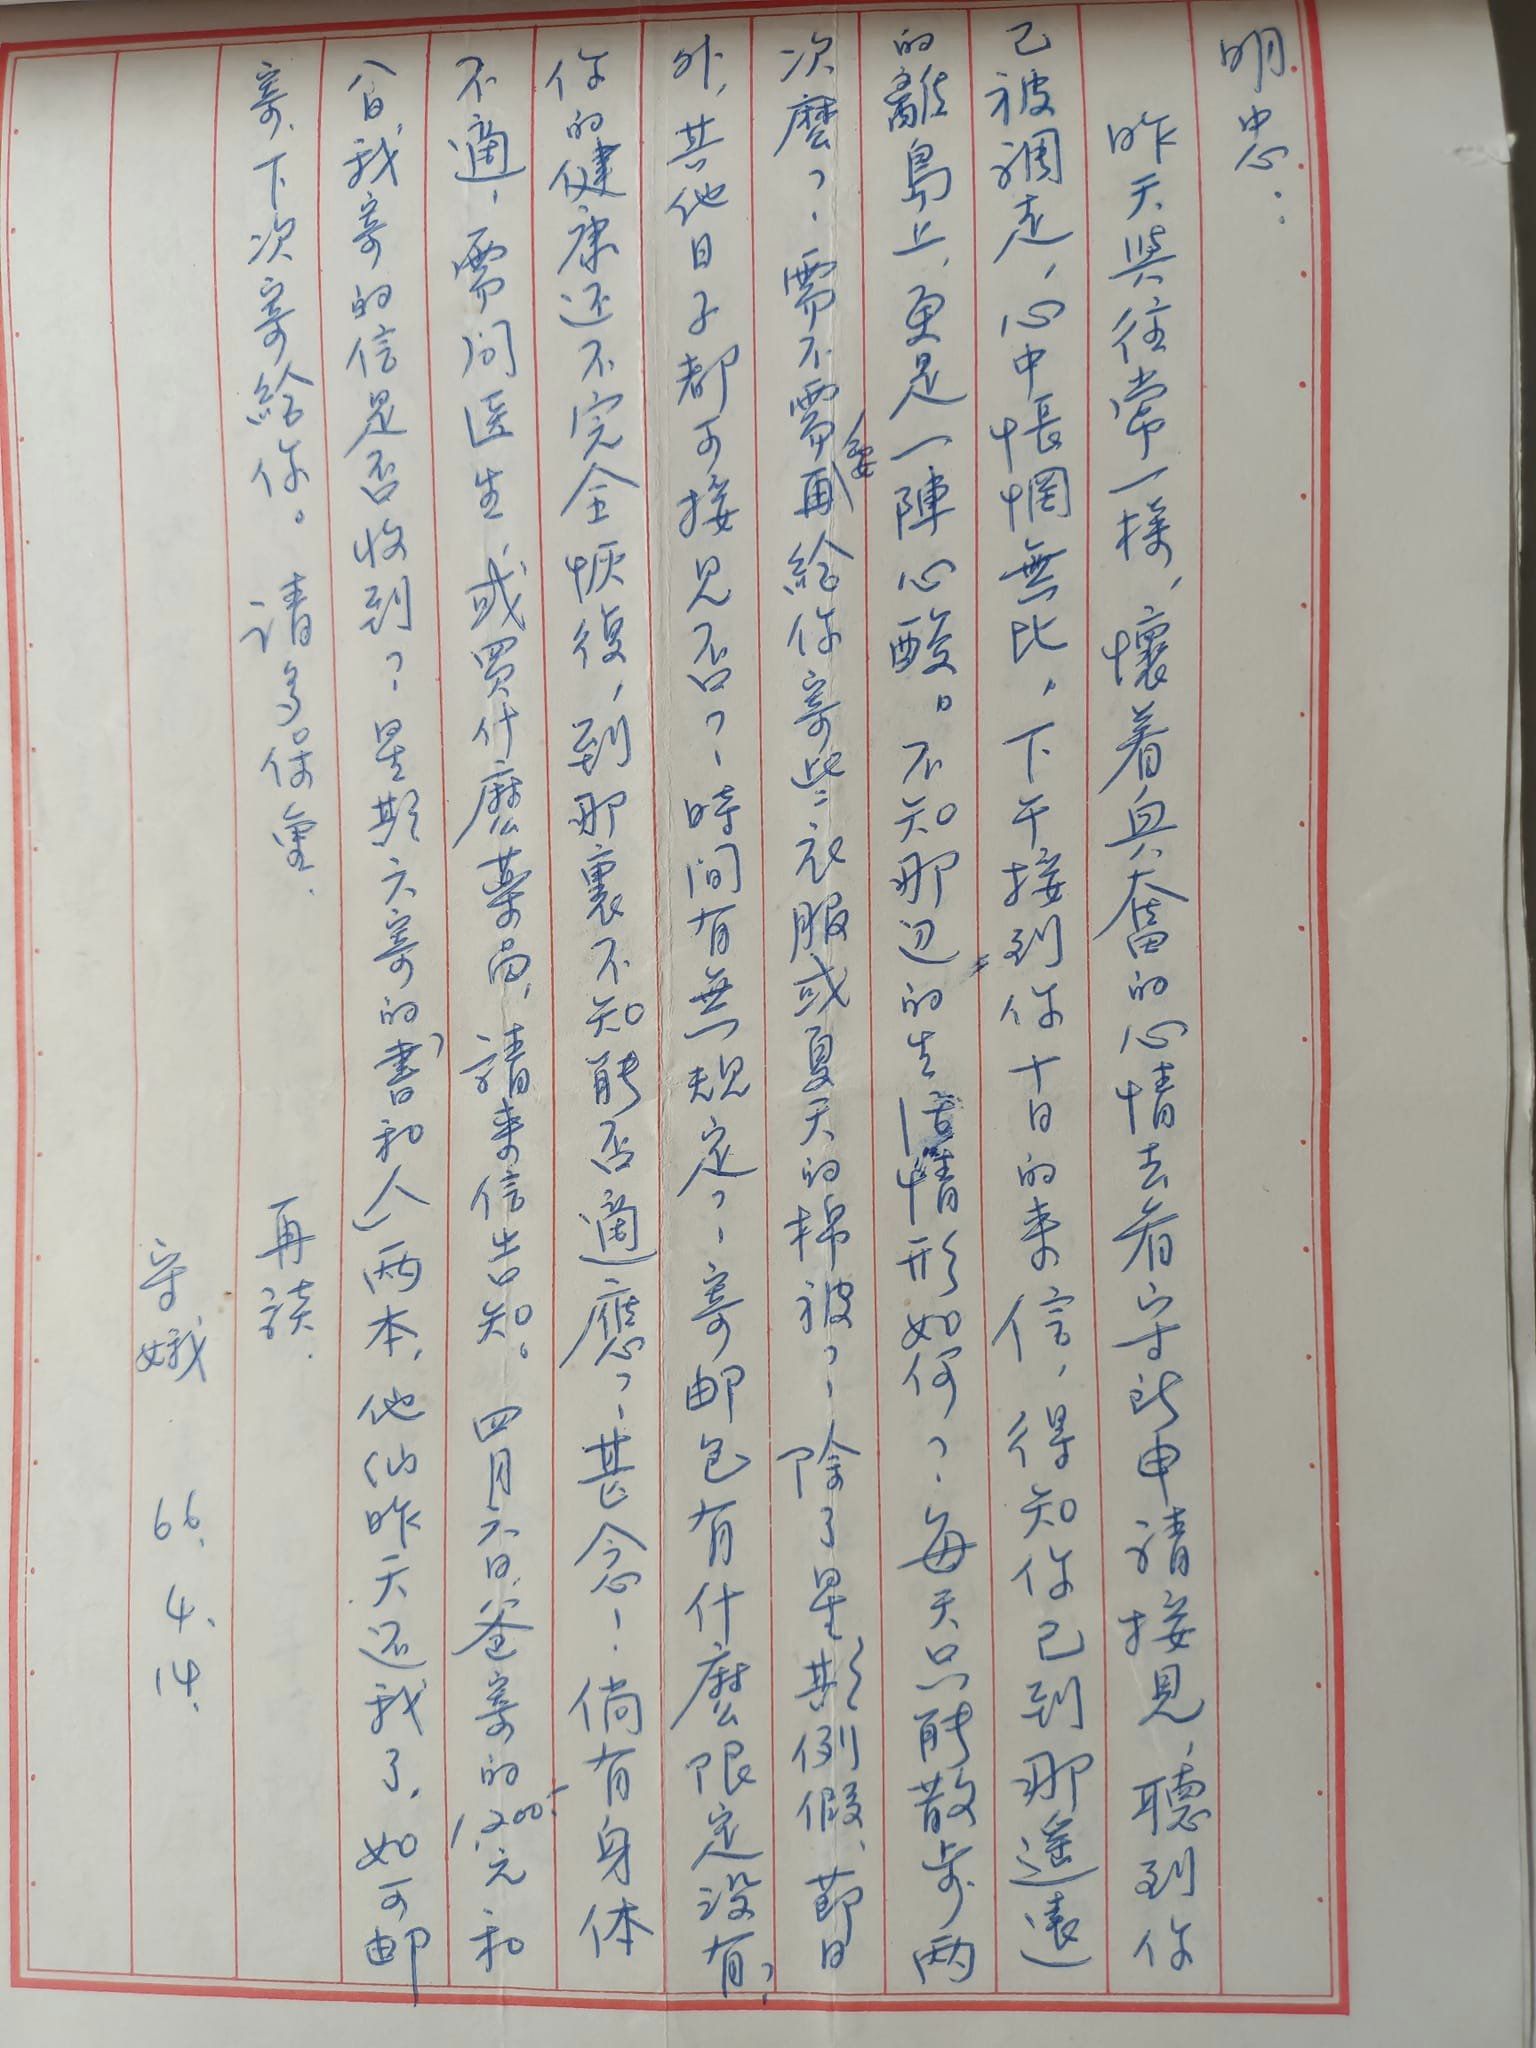 明忠：
昨天與往常一樣，懷着興奮的心情去看守所申請接見，聽到你
已被調走，心中悵惘無比，下午接到你十日的來信，得知你已到那遙遠
的離島上，更是一陣心酸。不知那边的生活情形如何？每天只能散步兩
次麼？需不需要再給你寄些衣服或夏天的棉被？除了星期例假、節日
外，其他日子都可接見否？時間有無規定？寄邮包有什麼限定没有？
你的健康还不完全恢復，到那裏不知能否適應？甚念！倘有身体
不適，需问医生，或買什麼藥品，請來信告知。四月六日爸寄的1,200元和
八日我寄的信是否收到？星期六寄的書和人兩本，他们昨天还我了，如可邮
寄，下次寄給你。請多保重。再談．
守娥 66.4.14.